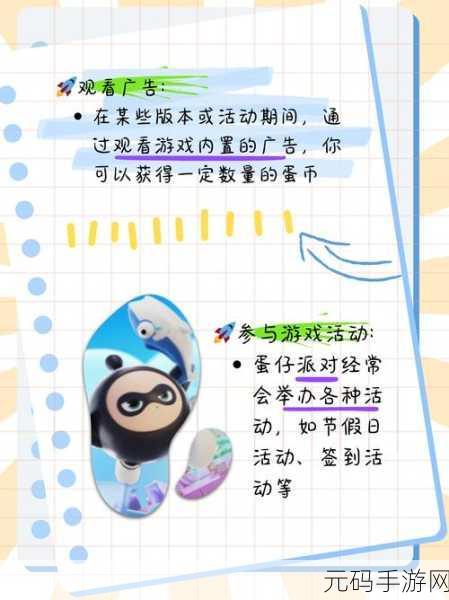 🚀观看广告:
• 在某些版本或活动期间，通
过观看游戏内置的广告，你
可以获得一定数量的蛋币
🚀参与游戏活动:
• 蛋仔派对经常
会举办各种活
动，如节假日
活动、签到活
动等
元码手游网